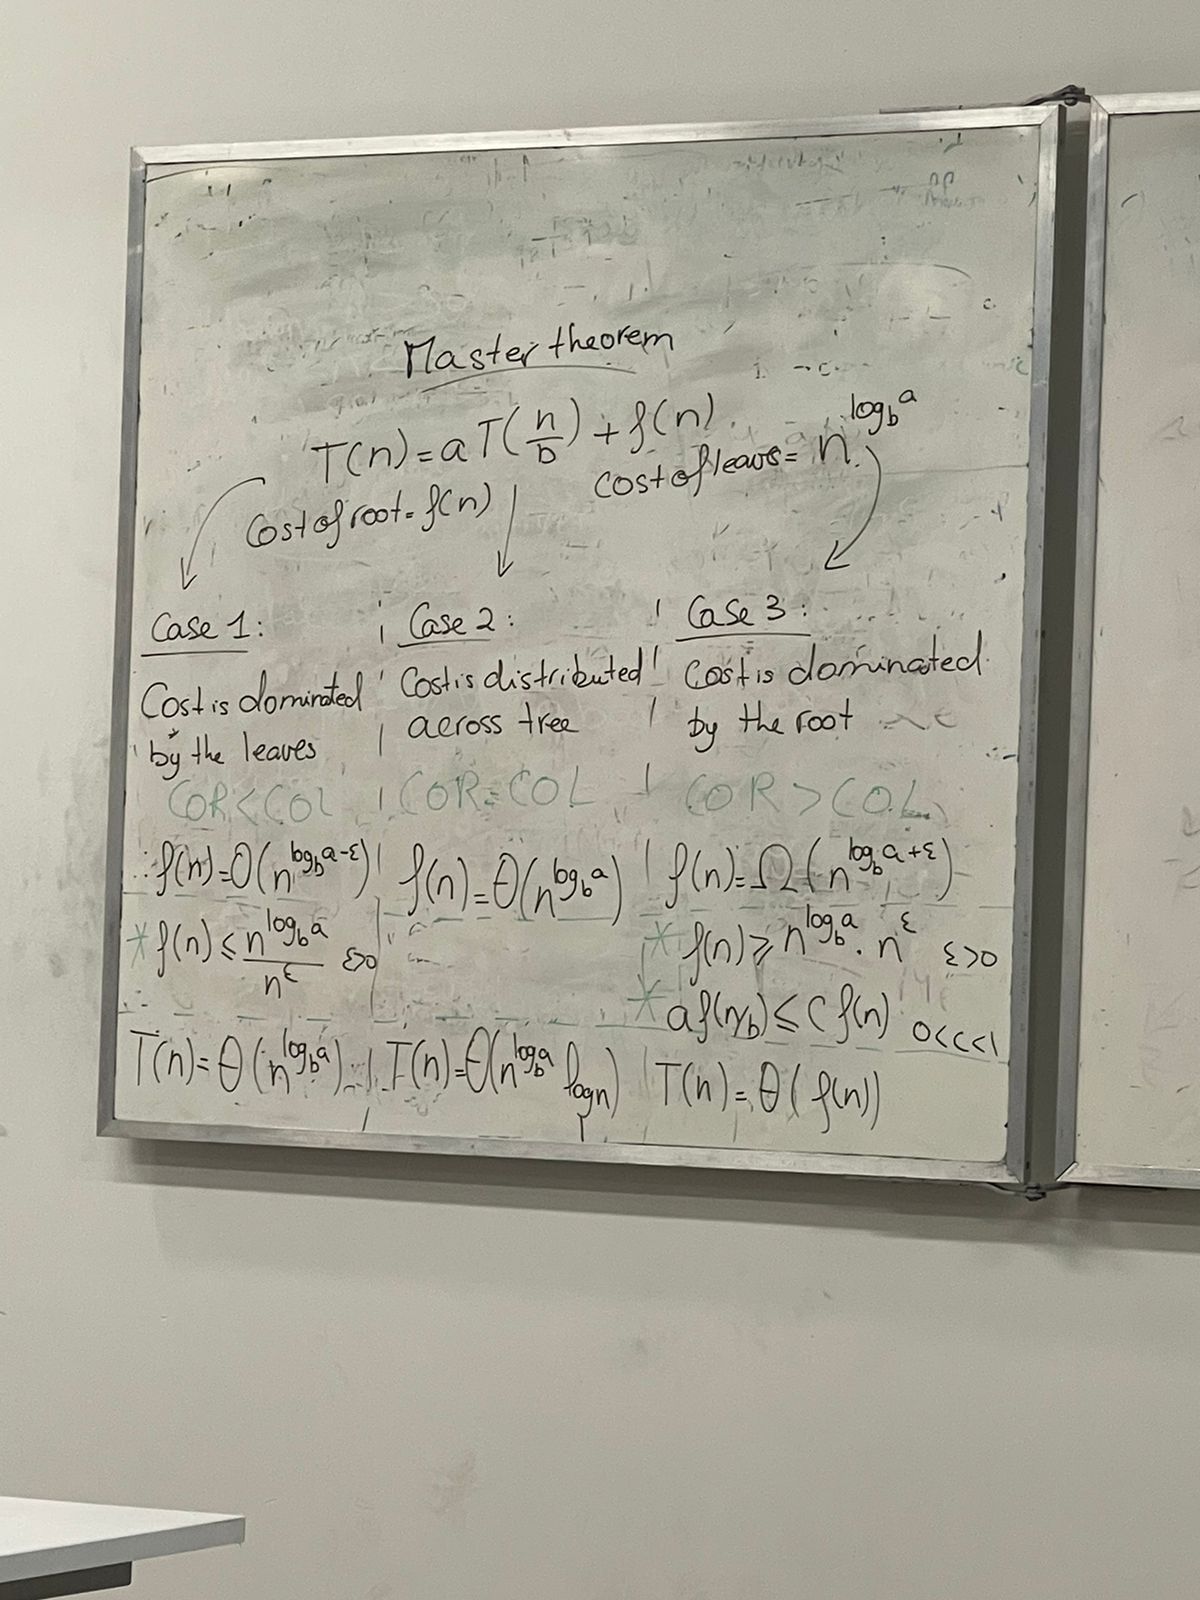 Master theorem
T(n) = a T(n/b) + f(n)
Cost of root = f(n)
Cost of leavs = n^log_b a
Case 1:
Cost is dominated
by the leaves
COR < COL
f(n) = O(n^log_b a-ε)
* f(n) ≤ n^log_b a / n^ε ε>0
T(n) = θ(n^log_b a)
Case 2:
Cost is distributed
across tree
COR = COL
f(n) = θ(n^log_b a)
T(n) = θ(n^log_b a log n)
Case 3:
Cost is dominated
by the root
COR > COL
f(n) = Ω(n^log_b a+ε)
* f(n) ≥ n^log_b a . n^ε ε>0
* a f(n/b) ≤ C f(n) 0<c<1
T(n) = θ(f(n))